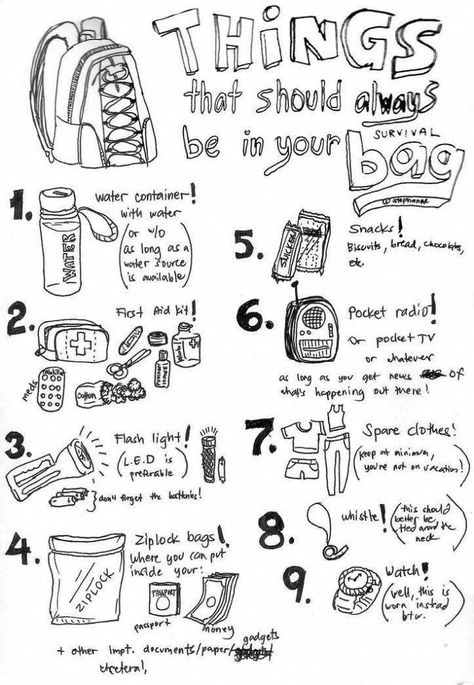 THINGS
that should always
be in your SURVIVAL bag
@stephanae
1.
WATER
water container!
with water
(or w/o
as long as a
water source
is available)
2.
First Aid kit!
meds
Cotton
3.
Flash light!
(L.E.D is
preferable)
(don't forget the batteries!)
4.
ZIPLOCK
Ziplock bags!
where you can put
inside your:
PASSPORT
passport
money
+ other impt. documents/paper/gadgets
etcetera!,
5.
SNICKER
Snacks!
Biscuits, bread, chocolate,
etc
6.
Pocket radio!
Or pocket TV
or whatever
as long as you get news of
what's happening out there!
7.
Spare clothes!
(keep at minimum,
you're not on vacation!)
8.
whistle!
(this should
better be
tied around the
neck)
9.
Watch!
(well, this is
worn instead
btw.)